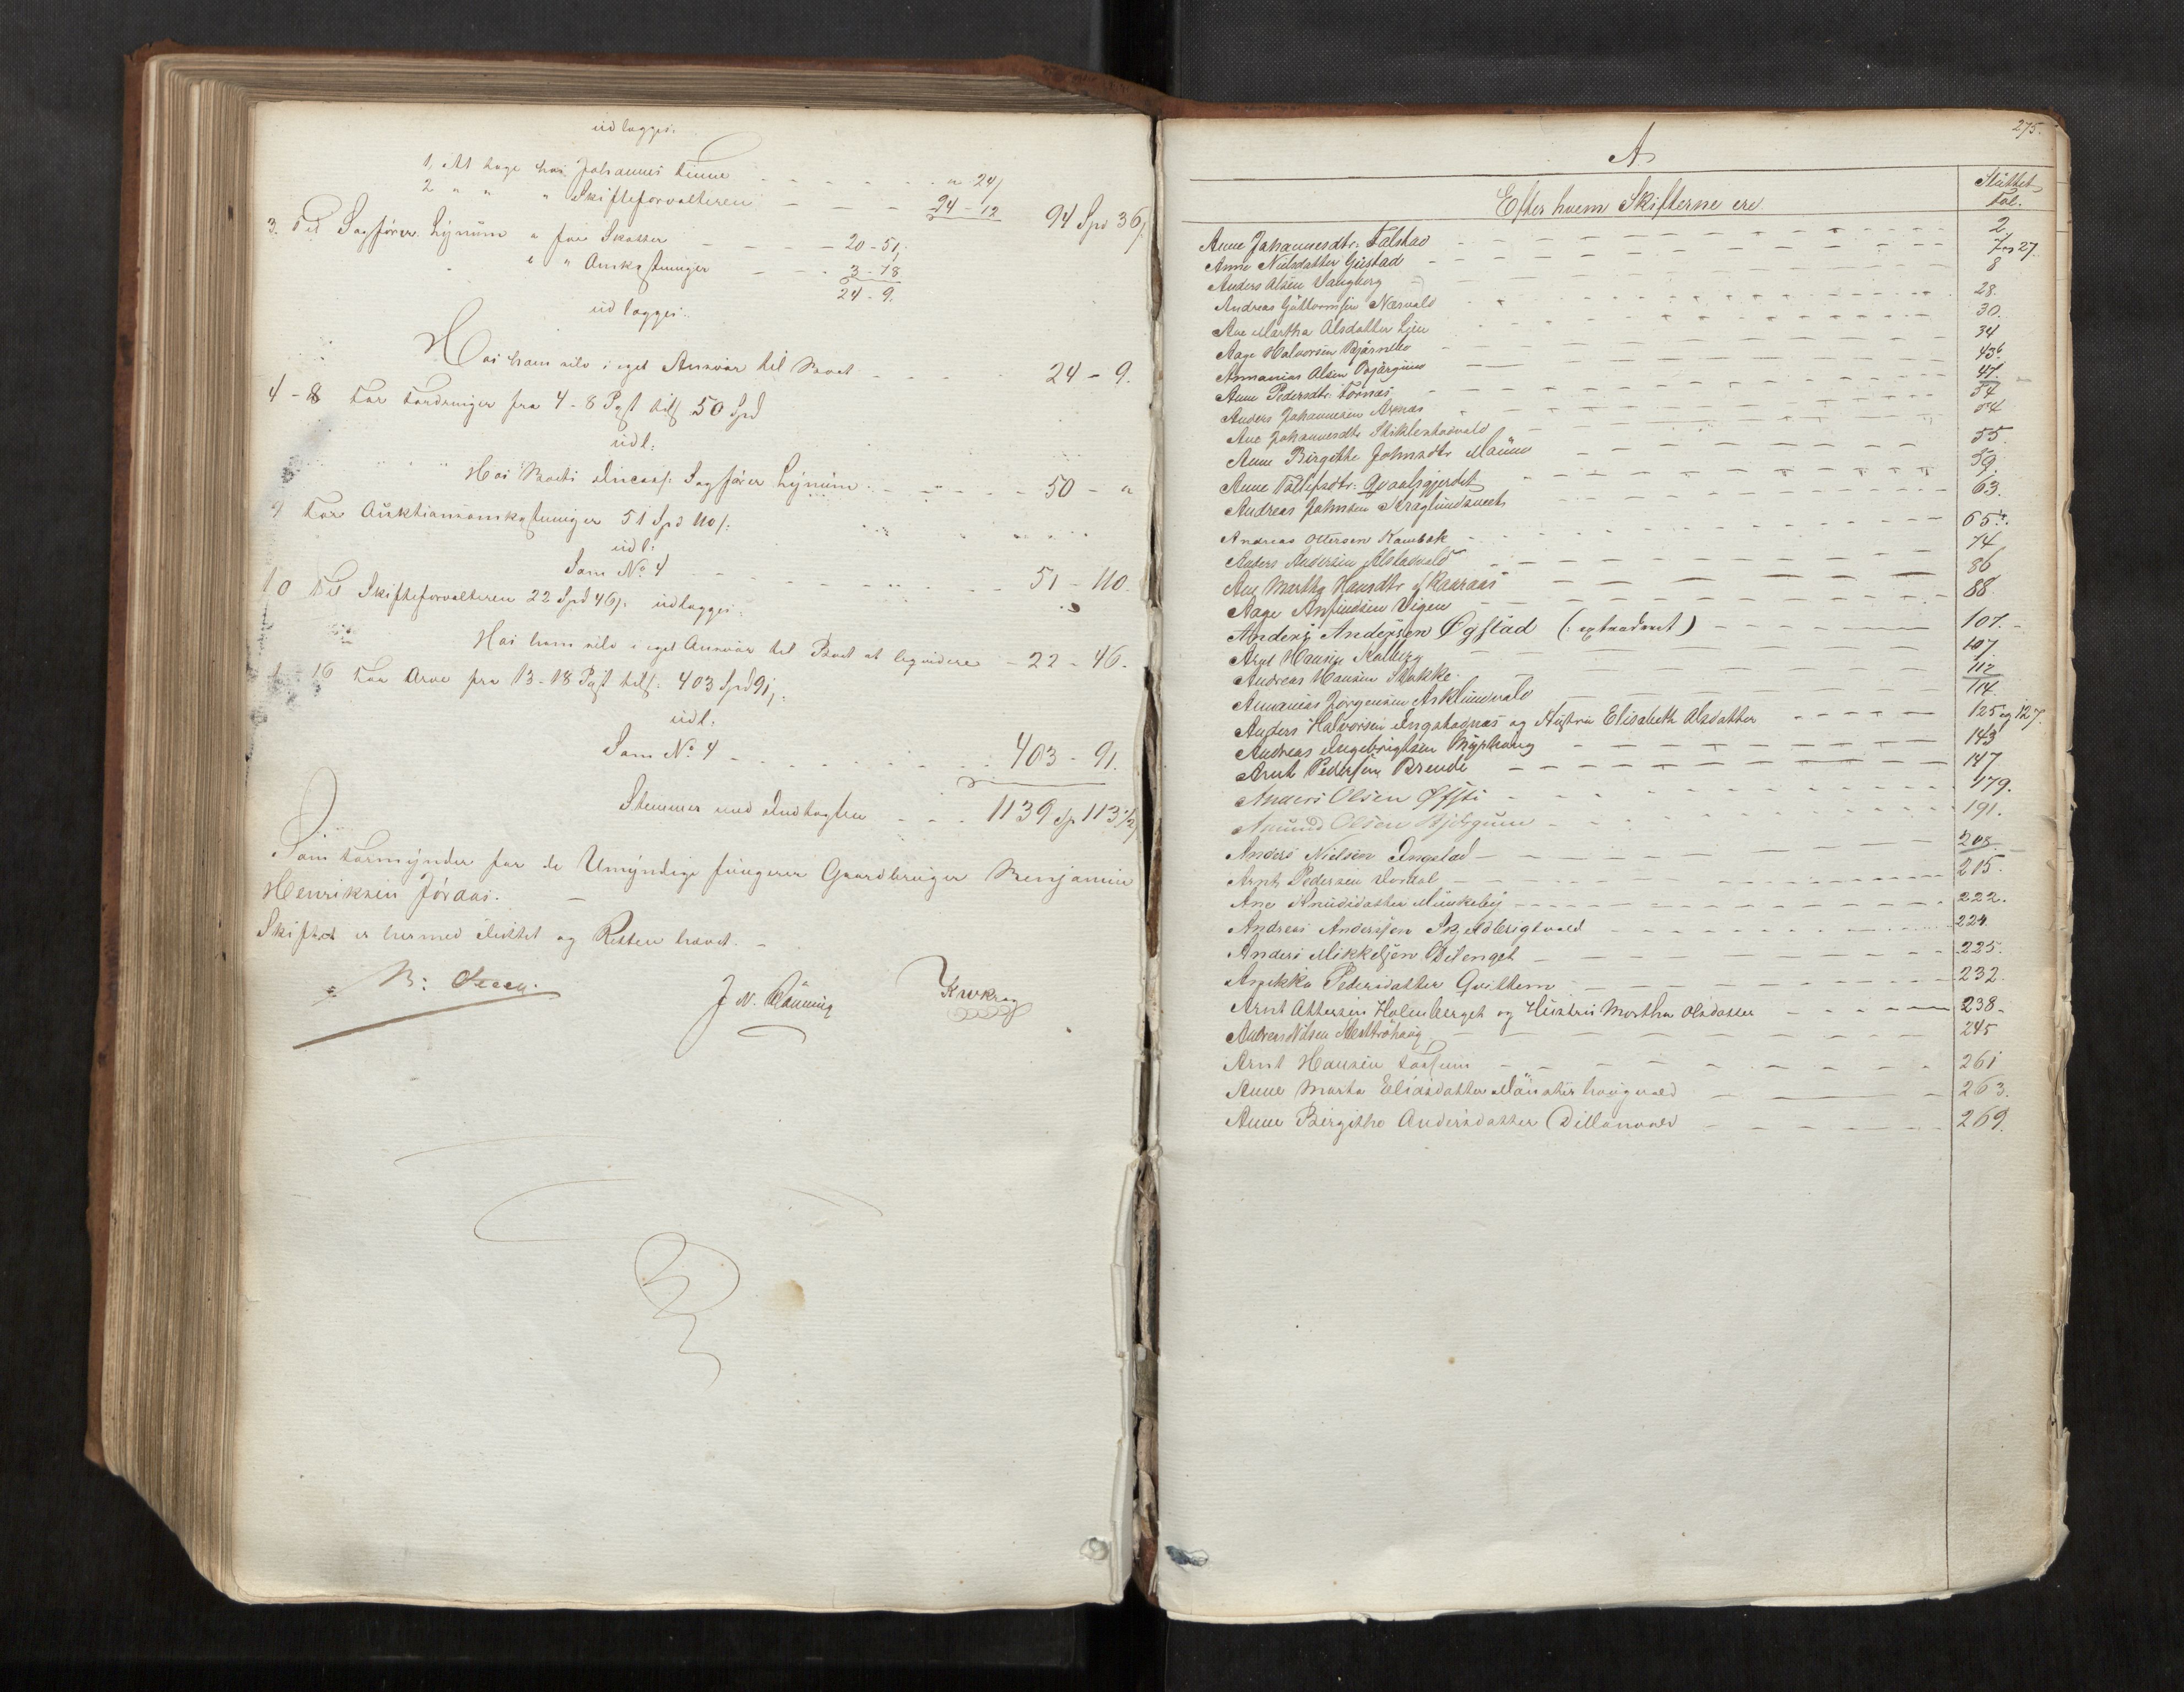 udlagges:
1, At tage hos Johannes Finne - - - - - " 24/
2 " " " Skifteforvalteren - - - 94 - 12 94 Spd 36/
3. Til Sagfører Lynum a for Skatter - - - 20 - 51,
" Omkostninger - - - 3 - 78
24 - 9.
udlagges:
Hos ham selv i eget Ansvar til Boet - - - - 24 - 9.
4 - 8 For Fordringer fra 4 - 8 Post tils. 50 Spd
udl:
Hos Boets Incass. Sagfører Lynum - - - - 50 - "
9 For Auktionsomkostninger 51 Spd 110/:
udl:
Som No 4 - - - - - - 51 - 110.
10 Til Skifteforvalteren 22 Spd 46/. udlagges:
Hos ham selv i eget Ansvar til Boet at liqvidere - 22 - 46.
- 16 For Arve fra 13 - 18 Post tils. 403 Spd 91/.
udl:
Som No 4 - - - - - - 403 - 91.
Stemmer med Indtægten - - - 1139 Sp 113 1/2
Som Formynder for de Umyndige fungerer Gaardbruger Benjamin
Henriksen Jørdas. -
Skiftet er hermed sluttet og Retten hævet. -
J N.
275.
A
Efter hvem Skifterne ere Sluttet Fol.
Anne Johannesdtr: Falstad - - - 2.
Anne Nielsdatter Gustad - - - 7 og 27.
Anders Olsen Vangberg - - - 8
Andreas Guttormsen Næsvald - - - 28.
Ane Martha Olsdatter Lien - - - 30.
Aage Halvorsen Bjørnebo - - - 34
Annanias Olsen Bjørgum - - - 43b.
Anne Pedersdtr: Fornæs - - - 47.
Anders Johannesen Axnæs - - - 54
Ane Johannesdtr Stiklestadvald - - - 54
Anne Birgitha Johnsdtr Maune - - - 55.
Anne Tollefsdtr: Qvaalsgjerdet - - - 59.
Andreas Johnsen Kraglundsneset - - - 63.
Andreas Ottersen Kambek - - - 65b.
Anders Andersen Alstadvald - - - 74
Ane Martha Hansdtr Skaaraas - - - 86
Aage Anfindsen Vigen - - - 88.
Anders Andersen Øgstad (: extraderet) - - - 107. -
Arnt Hansen Kolberg - - - 107.
Andreas Hansen Stokke - - - 112
Annanias Jørgensen Asklundvald - - - 114.
Anders Halvorsen Ingstadnæs og Hustru Elisabeth Olsdatter - - - 125 og 127.
Andreas Ingebrigtsen Myrhaug - - - 143
Arnt Pedersen Brende - - - 147
Anders Olsen Øfsti - - - 179.
Amund Olsen Bjørgum - - - 191.
Anders Nielsen Ingstad - - - 203.
Arnt Pedersen Vordal - - - 215.
Ane Knudsdatter Munkeby - - - 222.
Andreas Andersson Skjeldbrigtvald - - - 224.
Anders Mikkelsen Bilenget - - - 225.
Annikka Pedersdatter Qvilhem - - - 232.
Arnt Ottersen Holmberget og Hustru Martha Olsdatter - - - 238.
Andreas Nilsen Melbröhaug - - - 245
Arnt Hansen Fossum - - - 261
Anne Marta Eliasdatter Maursterhaugvald - - - 263.
Anne Birgitha Andersdatter Dillanvald - - - 269.